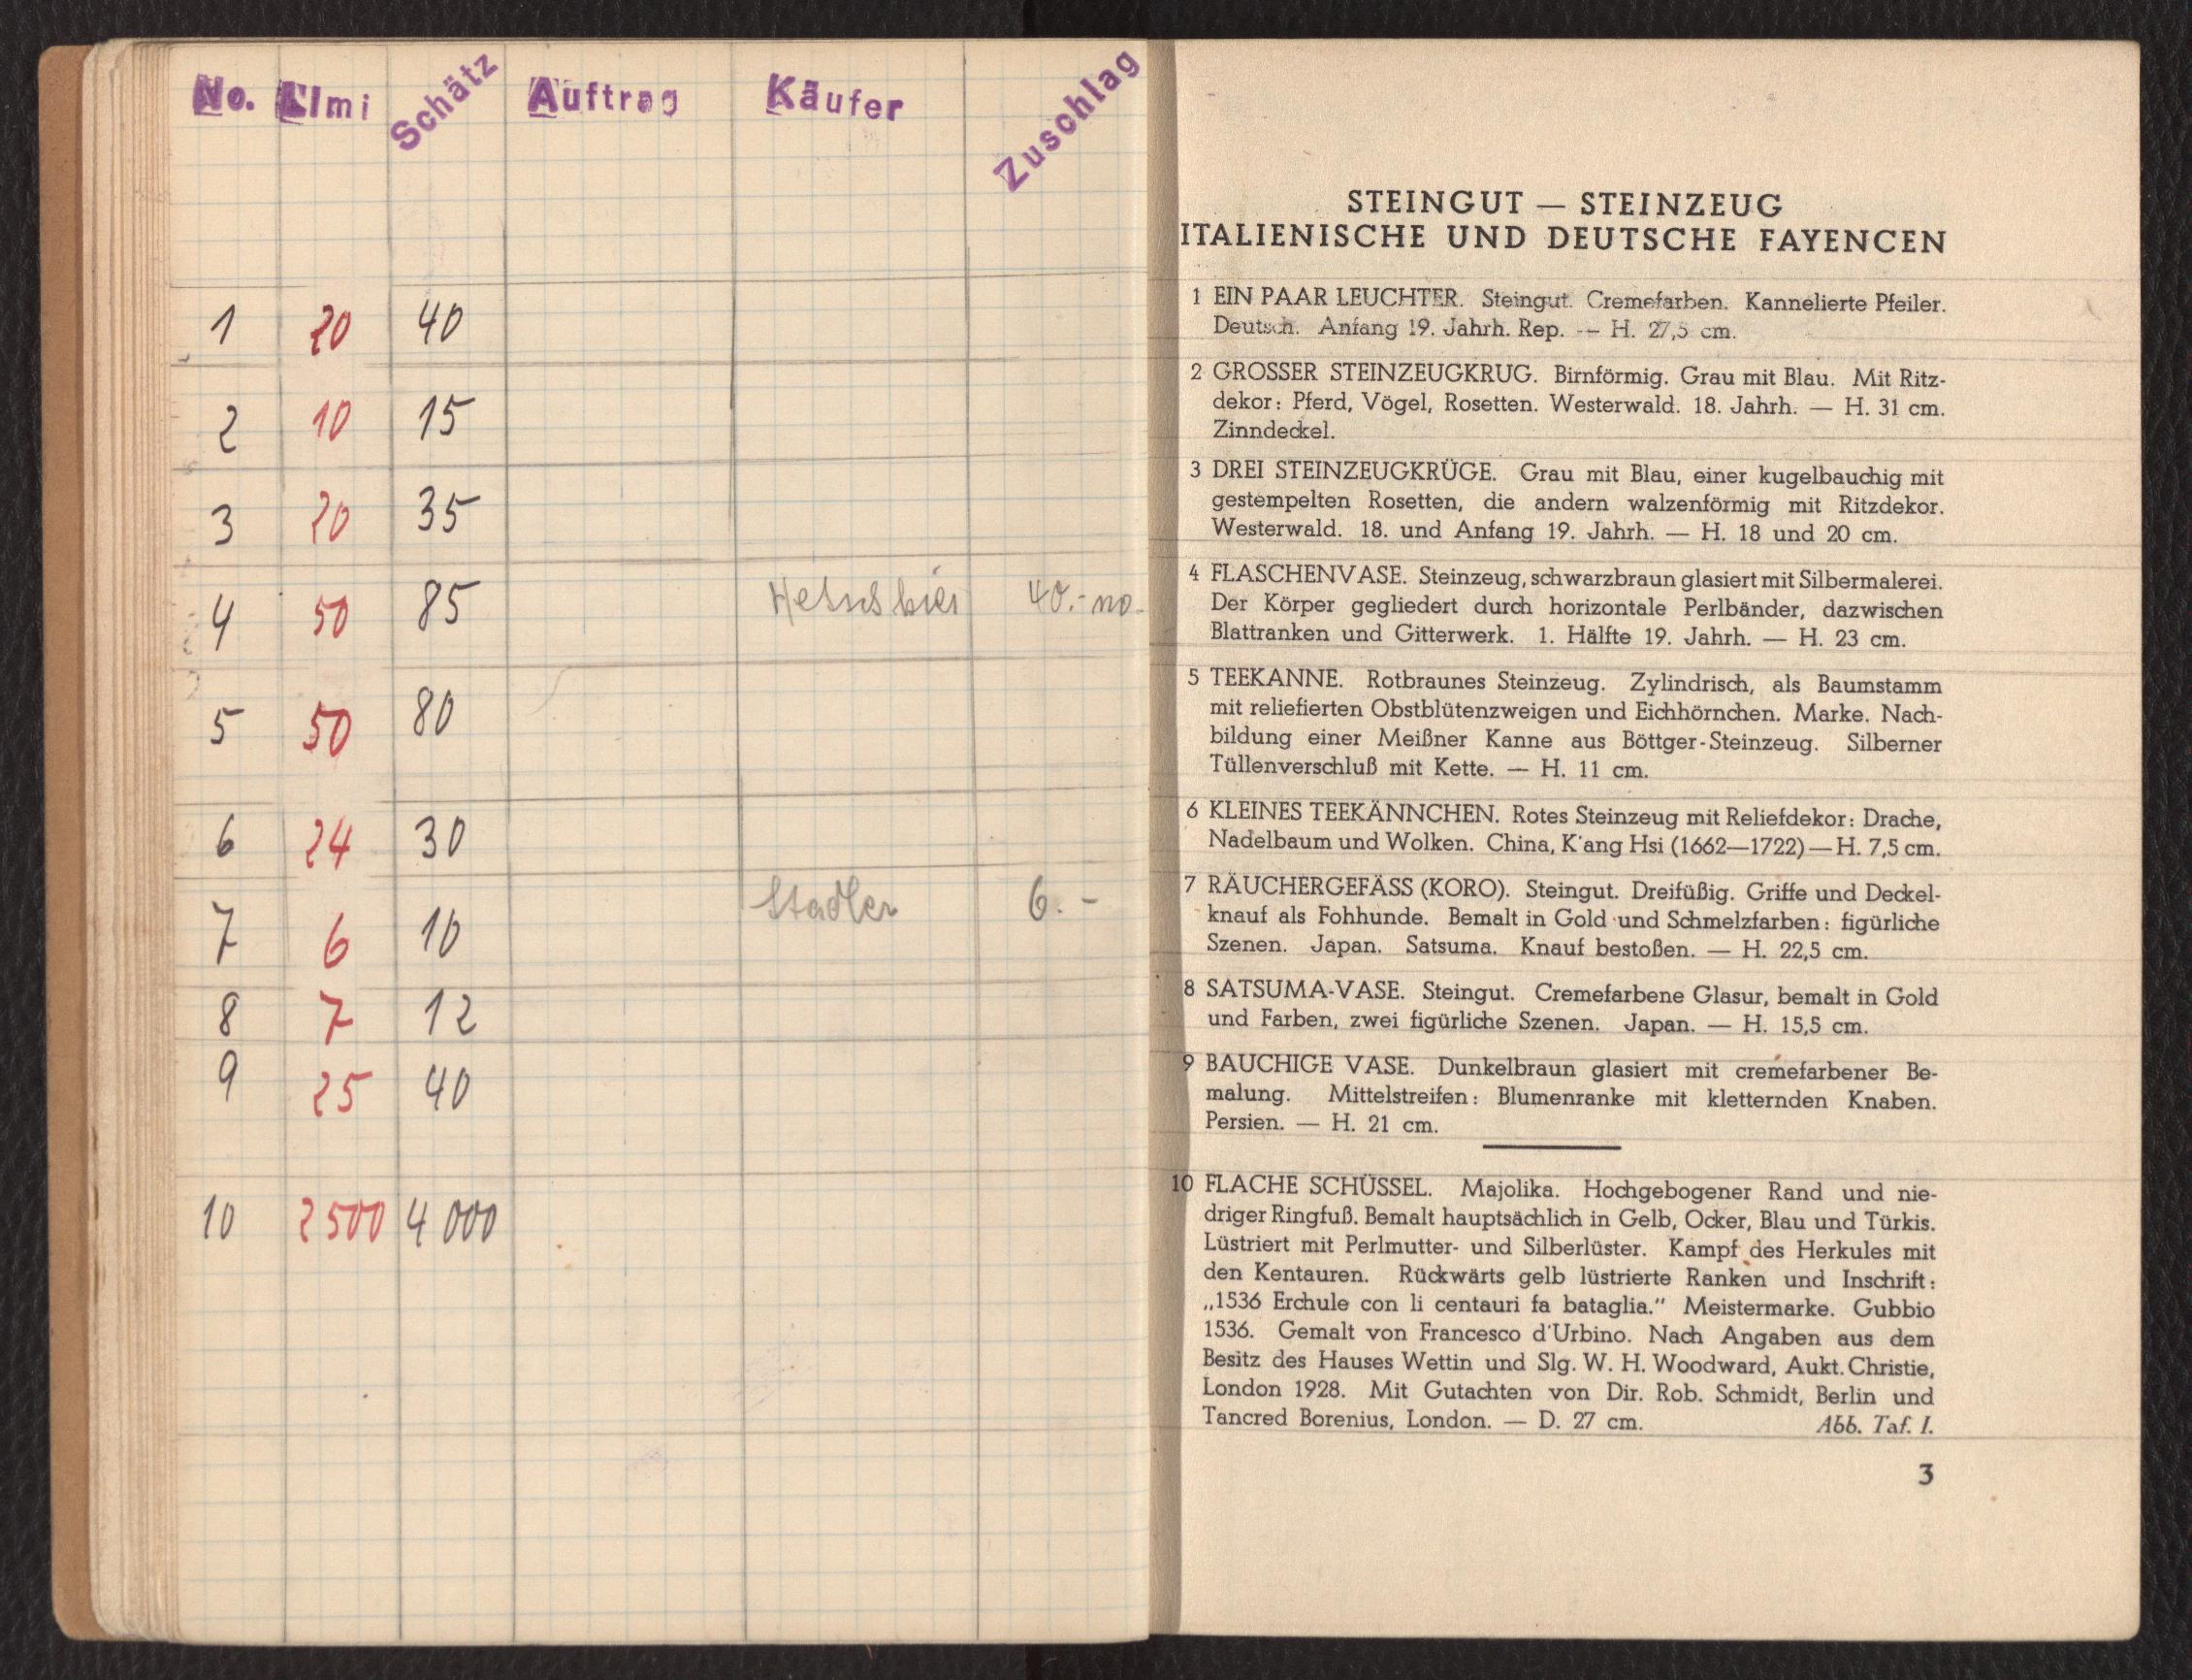 No. Limi Schätz Auftrag Käufer Zuschlag
1 20 40
2 10 15
3 20 35
4 50 85 40.- no.
5 50 80
6 24 30
7 6 10 Stadler 6.-
8 7 12
9 25 40
10 2500 4000
STEINGUT — STEINZEUG
ITALIENISCHE UND DEUTSCHE FAYENCEN
1 EIN PAAR LEUCHTER. Steingut. Cremefarben. Kannelierte Pfeiler.
Deutsch. Anfang 19. Jahrh. Rep. -- H. 27,5 cm.
2 GROSSER STEINZEUGKRUG. Birnförmig. Grau mit Blau. Mit Ritz-
dekor: Pferd, Vögel, Rosetten. Westerwald. 18. Jahrh. — H. 31 cm.
Zinndeckel.
3 DREI STEINZEUGKRÜGE. Grau mit Blau, einer kugelbauchig mit
gestempelten Rosetten, die andern walzenförmig mit Ritzdekor.
Westerwald. 18. und Anfang 19. Jahrh. — H. 18 und 20 cm.
4 FLASCHENVASE. Steinzeug, schwarzbraun glasiert mit Silbermalerei.
Der Körper gegliedert durch horizontale Perlbänder, dazwischen
Blattranken und Gitterwerk. 1. Hälfte 19. Jahrh. — H. 23 cm.
5 TEEKANNE. Rotbraunes Steinzeug. Zylindrisch, als Baumstamm
mit reliefierten Obstblütenzweigen und Eichhörnchen. Marke. Nach-
bildung einer Meißner Kanne aus Böttger-Steinzeug. Silberner
Tüllenverschluß mit Kette. — H. 11 cm.
6 KLEINES TEEKÄNNCHEN. Rotes Steinzeug mit Reliefdekor: Drache,
Nadelbaum und Wolken. China, K'ang Hsi (1662—1722) — H. 7,5 cm.
7 RÄUCHERGEFÄSS (KORO). Steingut. Dreifüßig. Griffe und Deckel-
knauf als Fohhunde. Bemalt in Gold und Schmelzfarben: figürliche
Szenen. Japan. Satsuma. Knauf bestoßen. — H. 22,5 cm.
8 SATSUMA-VASE. Steingut. Cremefarbene Glasur, bemalt in Gold
und Farben, zwei figürliche Szenen. Japan. — H. 15,5 cm.
9 BAUCHIGE VASE. Dunkelbraun glasiert mit cremefarbener Be-
malung. Mittelstreifen: Blumenranke mit kletternden Knaben.
Persien. — H. 21 cm.
10 FLACHE SCHÜSSEL. Majolika. Hochgebogener Rand und nie-
driger Ringfuß. Bemalt hauptsächlich in Gelb, Ocker, Blau und Türkis.
Lüstriert mit Perlmutter- und Silberlüster. Kampf des Herkules mit
den Kentauren. Rückwärts gelb lüstrierte Ranken und Inschrift:
„1536 Erchule con li centauri fa bataglia." Meistermarke. Gubbio
1536. Gemalt von Francesco d'Urbino. Nach Angaben aus dem
Besitz des Hauses Wettin und Slg. W. H. Woodward, Aukt. Christie,
London 1928. Mit Gutachten von Dir. Rob. Schmidt, Berlin und
Tancred Borenius, London. — D. 27 cm. Abb. Taf. I.
3